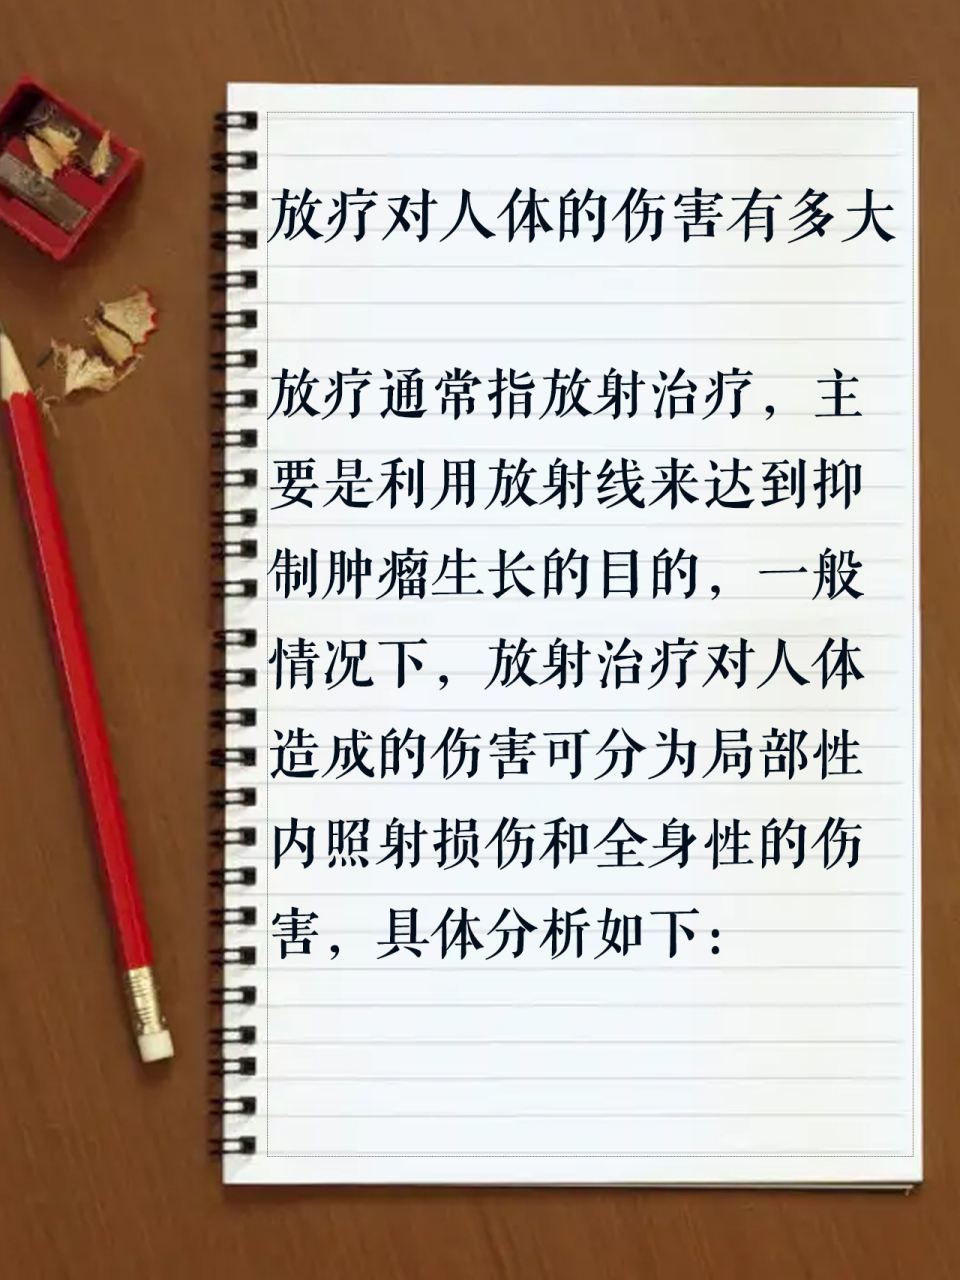 放疗对人体的伤害有多大
放疗通常指放射治疗，主
要是利用放射线来达到抑
制肿瘤生长的目的，一般
情况下，放射治疗对人体
造成的伤害可分为局部性
内照射损伤和全身性的伤
害，具体分析如下：